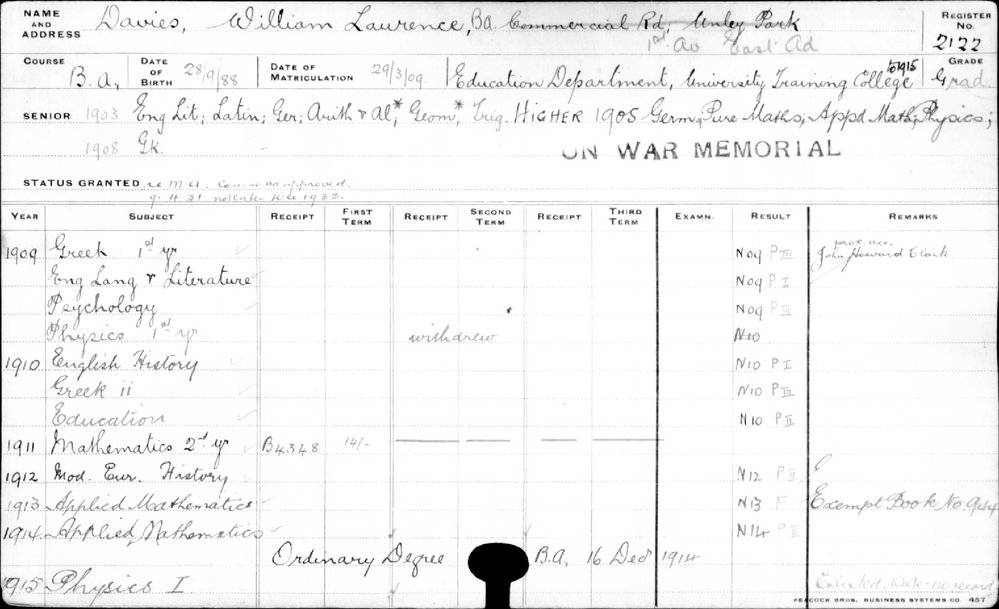 NAME AND ADDRESS Davies, William Laurence, B.A. Commercial Rd, Unley Park REGISTER No. 2122
1st Av East Ad
COURSE B.A., DATE OF BIRTH 28/9/88 DATE OF MATRICULATION 29/3/09. Education Department, University Training College to 1915 GRADE Grad.
SENIOR 1903 Eng Lit; Latin; Ger; Arith & Al*; Geom*; Trig. HIGHER 1905 Germ; Pure Maths; Appd Math; Physics;
1908 Gk.
ON WAR MEMORIAL
STATUS GRANTED re M.A. Course as approved
9.4.31 Dec 1933.
YEAR SUBJECT RECEIPT FIRST TERM RECEIPT SECOND TERM RECEIPT THIRD TERM EXAMN. RESULT REMARKS
1909 Greek 1st yr ✓ N09 P III prox. acc. John Howard Clark
Eng Lang & Literature ✓ N09 P I
Psychology N09 P II
Physics 1st yr ✓ withdrew N10
1910 English History ✓ N10 P I
Greek ii ✓ N10 P III
Education ✓ N10 P II
1911 Mathematics 2nd yr ✓ B4348 14/-
1912 Mod. Eur. History ✓ N12 P II
1913 Applied Mathematics ✓ N13 F Exempt Book No. 944
1914 Applied Mathematics ✓ N14 P II
Ordinary Degree B.A. 16 Dec 1914
1915 Physics I Enlisted. no record
PEACOCK BROS. BUSINESS SYSTEMS CO. 457